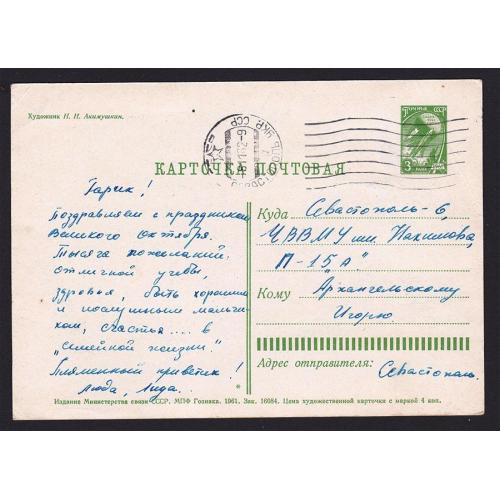 Художник Н. Н. Акимушкин.
ПОЧТА СССР
3
УКР. ССР
КАРТОЧКА ПОЧТОВАЯ
Гарик!
Поздравляем с праздником
Великого Октября.
Тысяча пожеланий:
отличной учебы,
здоровья, быть хорошим
и послушным мальчи-
ком, счастья.... в
"семейной жизни".
Пламенный приветик!
Люда, Лида.
Куда Севастополь-6,
ЧВВМУ им. Нахимова,
П-15 "А"
Кому Архангельскому
Игорю
Адрес отправителя: Севастополь.
Издание Министерства связи СССР. МПФ Гознака. 1961. Зак. 16084. Цена художественной карточки с маркой 4 коп.